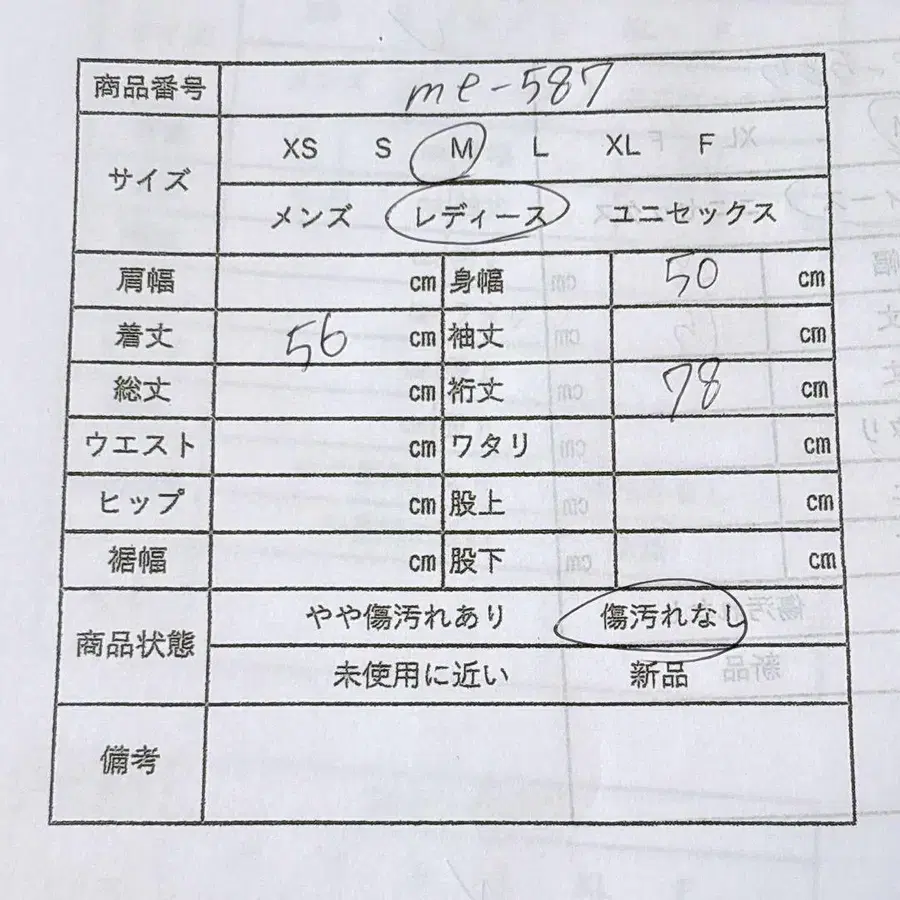 商品番号 me-587
サイズ XS S M L XL F
メンズ レディース ユニセックス
肩幅 cm 身幅 50 cm
着丈 56 cm 袖丈 cm
総丈 cm 裄丈 78 cm
ウエスト cm ワタリ cm
ヒップ cm 股上 cm
裾幅 cm 股下 cm
商品状態 やや傷汚れあり 傷汚れなし
未使用に近い 新品
備考